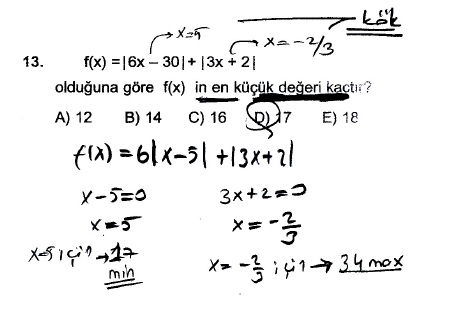 kök
x=5
x=-2/3
13. f(x) =|6x – 30|+ |3x + 2|
olduğuna göre f(x) in en küçük değeri kaçtır?
A) 12 B) 14 C) 16 D) 17 E) 18
f(x) = 6|x-5| + |3x+2|
x-5=0 3x+2=0
x=5 x=-2/3
x=5 için → 17 min
x=-2/3 için → 34 max